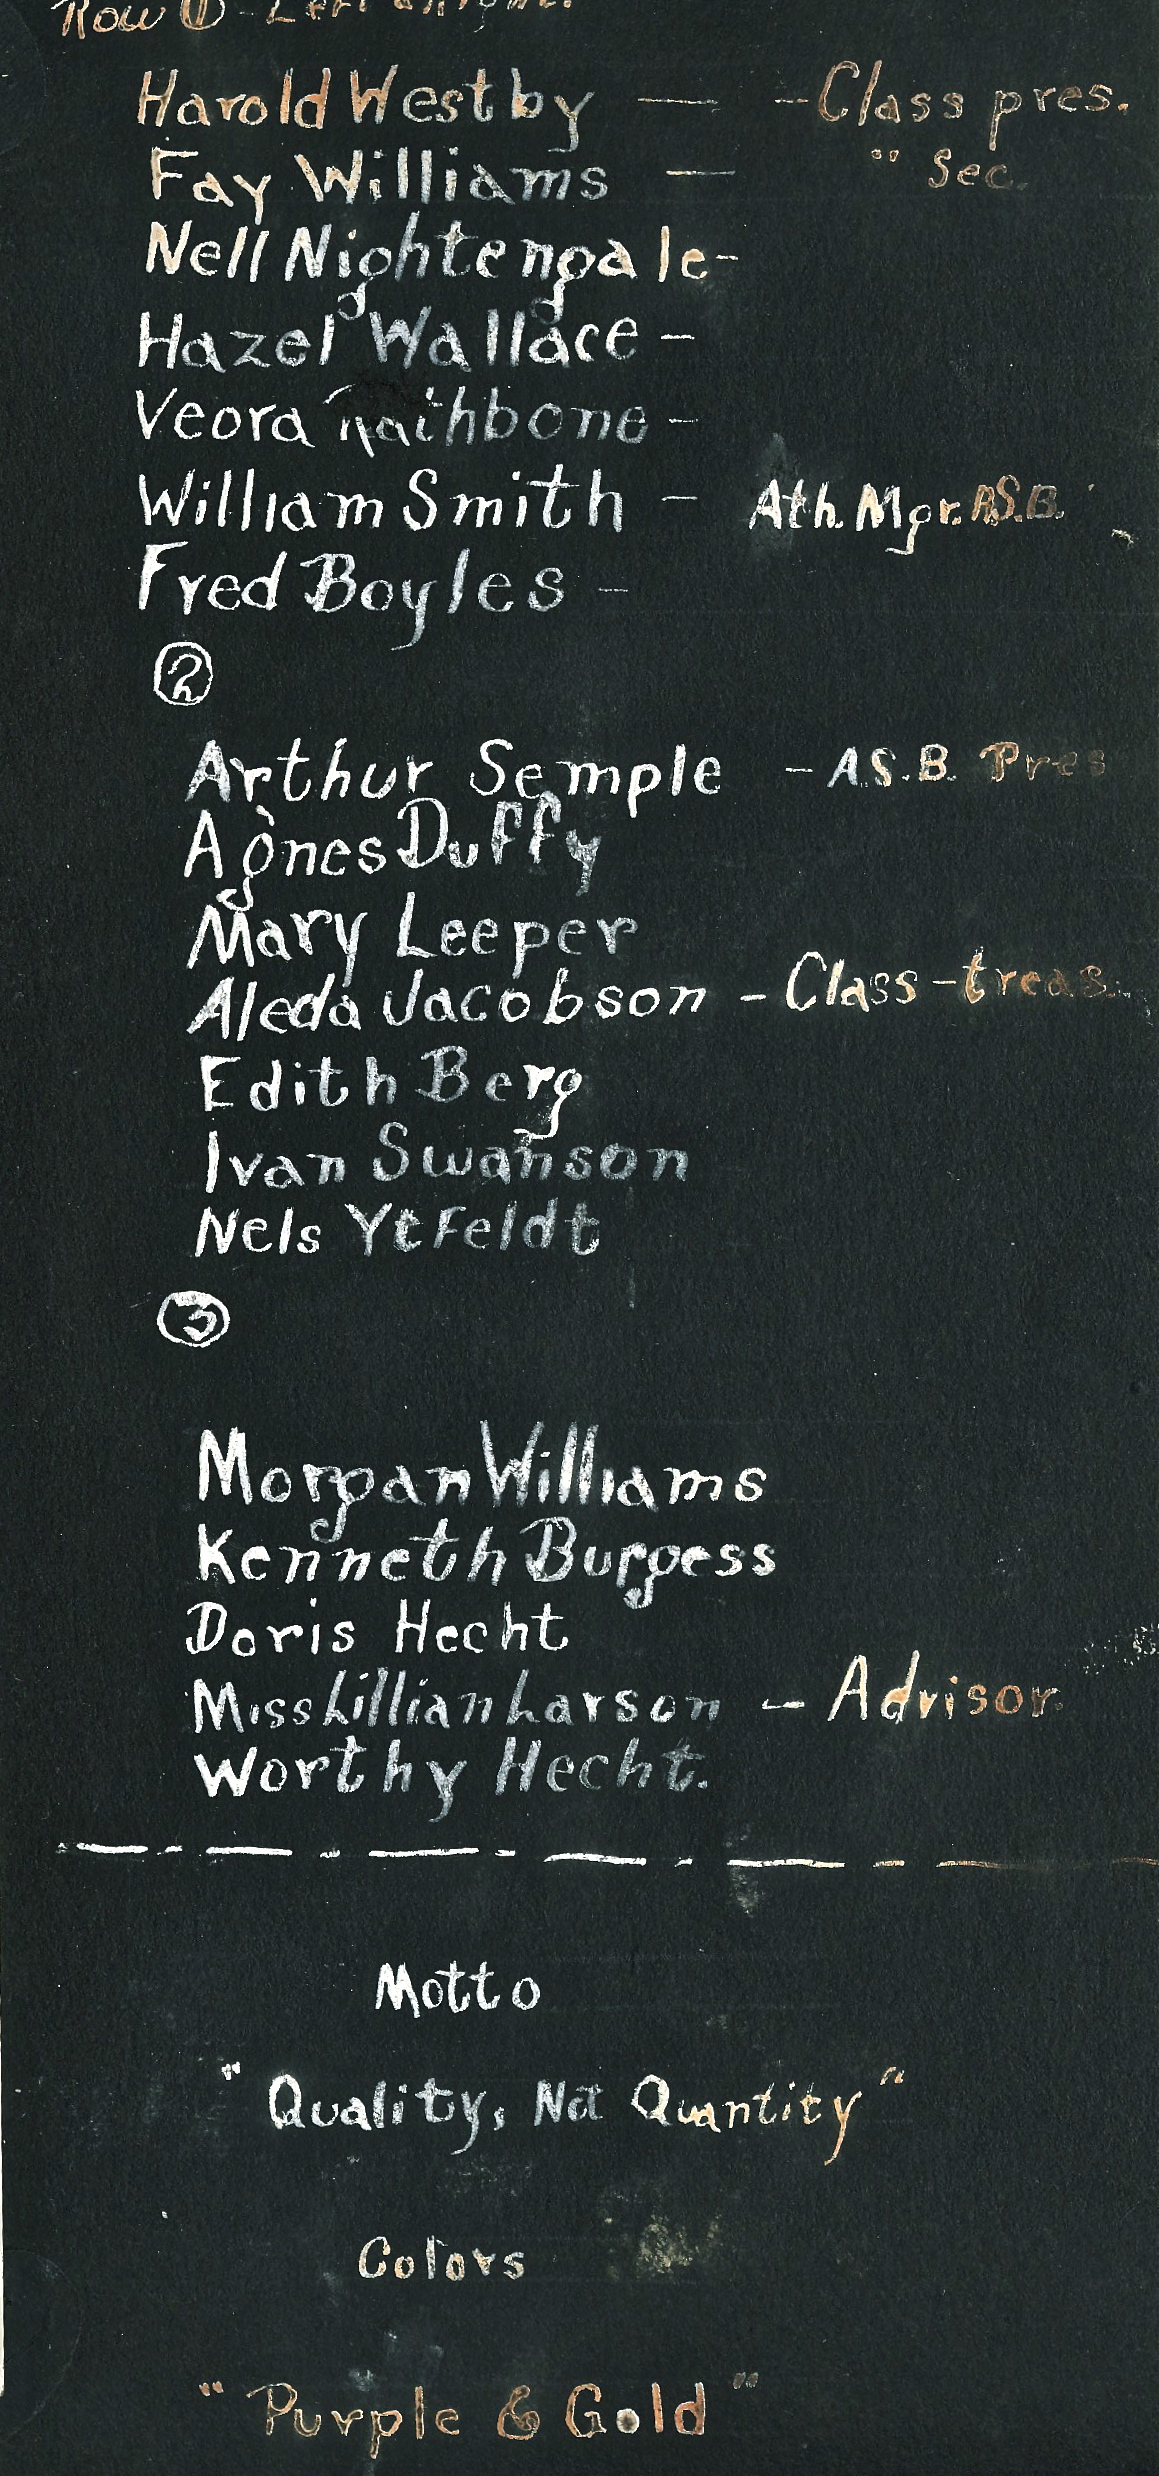 Row ① - Left
Harold Westby — - Class pres.
Fay Williams — " Sec.
Nell Nightengale -
Hazel Wallace -
Veora Rathbone -
William Smith - Ath. Mgr. A.S.B.
Fred Boyles -
②
Arthur Semple - A.S.B. Pres
Agnes Duffy
Mary Leeper
Aleda Jacobson - Class - treas.
Edith Berg
Ivan Swanson
Nels YtFeldt
③
Morgan Williams
Kenneth Burgess
Doris Hecht
Miss Lillian Larson - Advisor.
Worthy Hecht.
Motto
"Quality, Not Quantity"
Colors
"Purple & Gold"